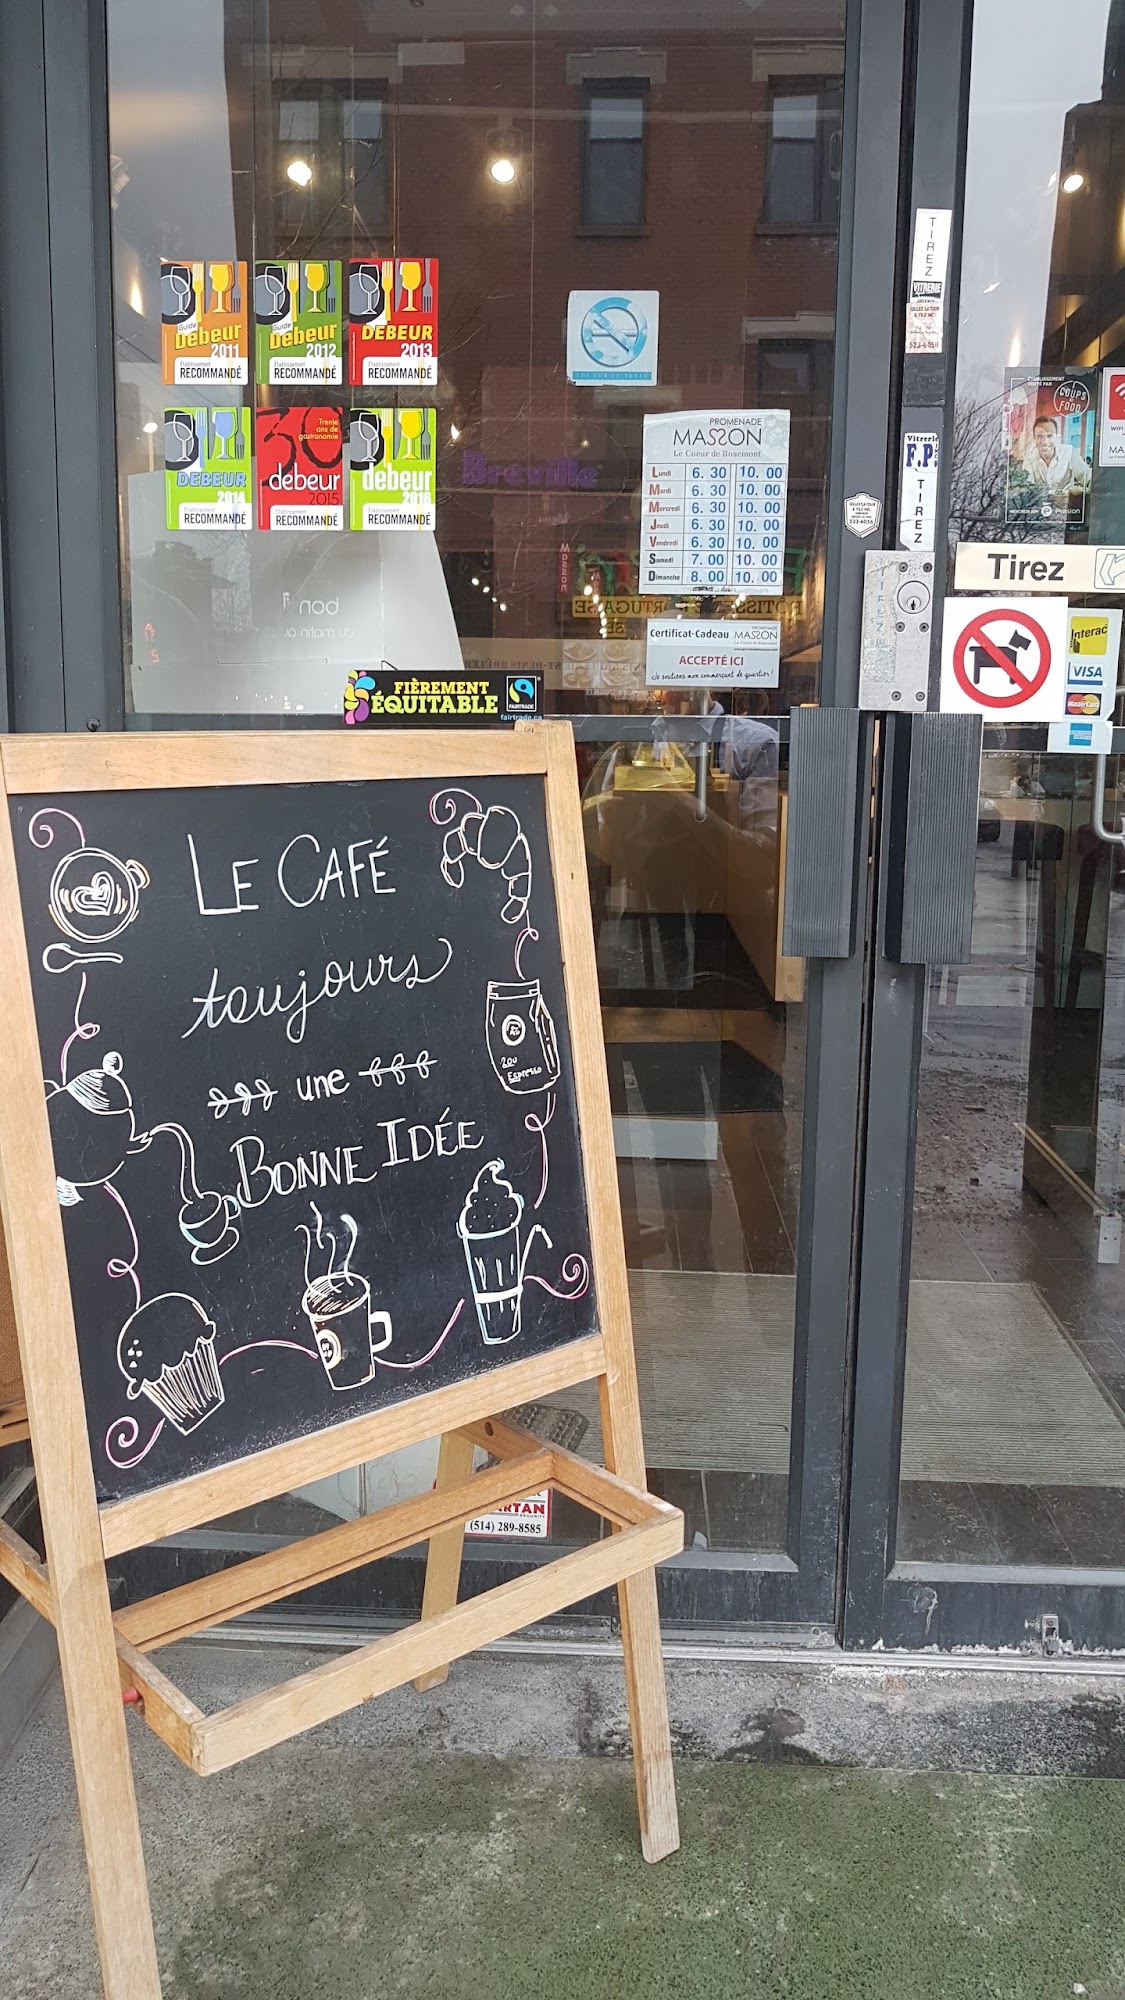 Guide
Debeur
2011
Établissement
RECOMMANDÉ
Guide
Debeur
2012
Établissement
RECOMMANDÉ
DEBEUR
2013
Établissement
RECOMMANDÉ
DEBEUR
2014
Établissement
RECOMMANDÉ
30
Trente
ans de
gastronomie
debeur
2015
Établissement
RECOMMANDÉ
debeur
2016
Établissement
RECOMMANDÉ
Breville
PROMENADE
MASSON
Le Coeur de Rosemont
Lundi 6. 30 10. 00
Mardi 6. 30 10. 00
Mercredi 6. 30 10. 00
Jeudi 6. 30 10. 00
Vendredi 6. 30 10. 00
Samedi 7. 00 10. 00
Dimanche 8. 00 10. 00
Certificat-Cadeau PROMENADE MASSON
ACCEPTÉ ICI
Je soutiens mon commerçant de quartier!
FIÈREMENT
ÉQUITABLE
FAIRTRADE
fairtrade.ca
TIREZ
VITRERIE
523-6056
Vitrerie
F.P.
TIREZ
523-6056
COUPS
FOOD
WIFI
Tirez
Interac
VISA
MasterCard
LE CAFÉ
toujours
une
BONNE IDÉE
200
Espresso
(514) 289-8585